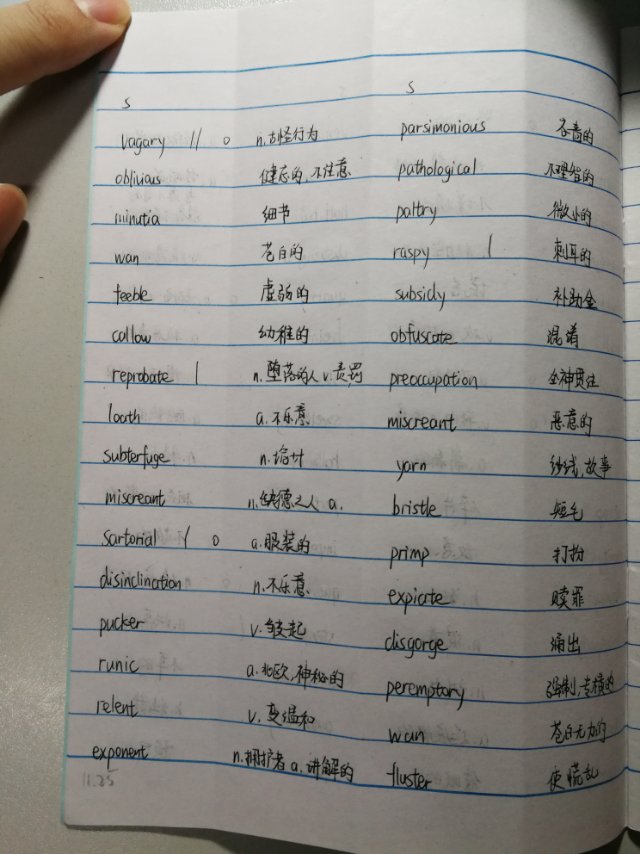 s s
vagary 11 o n.古怪行为 parsimonious 吝啬的
oblivious 健忘的,不注意 pathological 不理智的
minutia 细节 paltry 微小的
wan 苍白的 raspy 1 刺耳的
feeble 虚弱的 subsidy 补助金
callow 幼稚的 obfuscate 混淆
reprobate 1 n.堕落的人 v.责罚 preoccupation 全神贯注
loath a.不乐意 miscreant 恶意的
subterfuge n.诡计 yarn 纱线,故事
miscreant n.缺德之人 a. bristle 短毛
sartorial 1 o a.服装的 primp 打扮
disinclination n.不乐意 expicate 赎罪
pucker v.皱起 disgorge 涌出
runic a.北欧,神秘的 peremptory 强制,专横的
relent v.变温和 wan 苍白无力的
exponent n.拥护者 a.讲解的 fluster 使慌乱
11.25